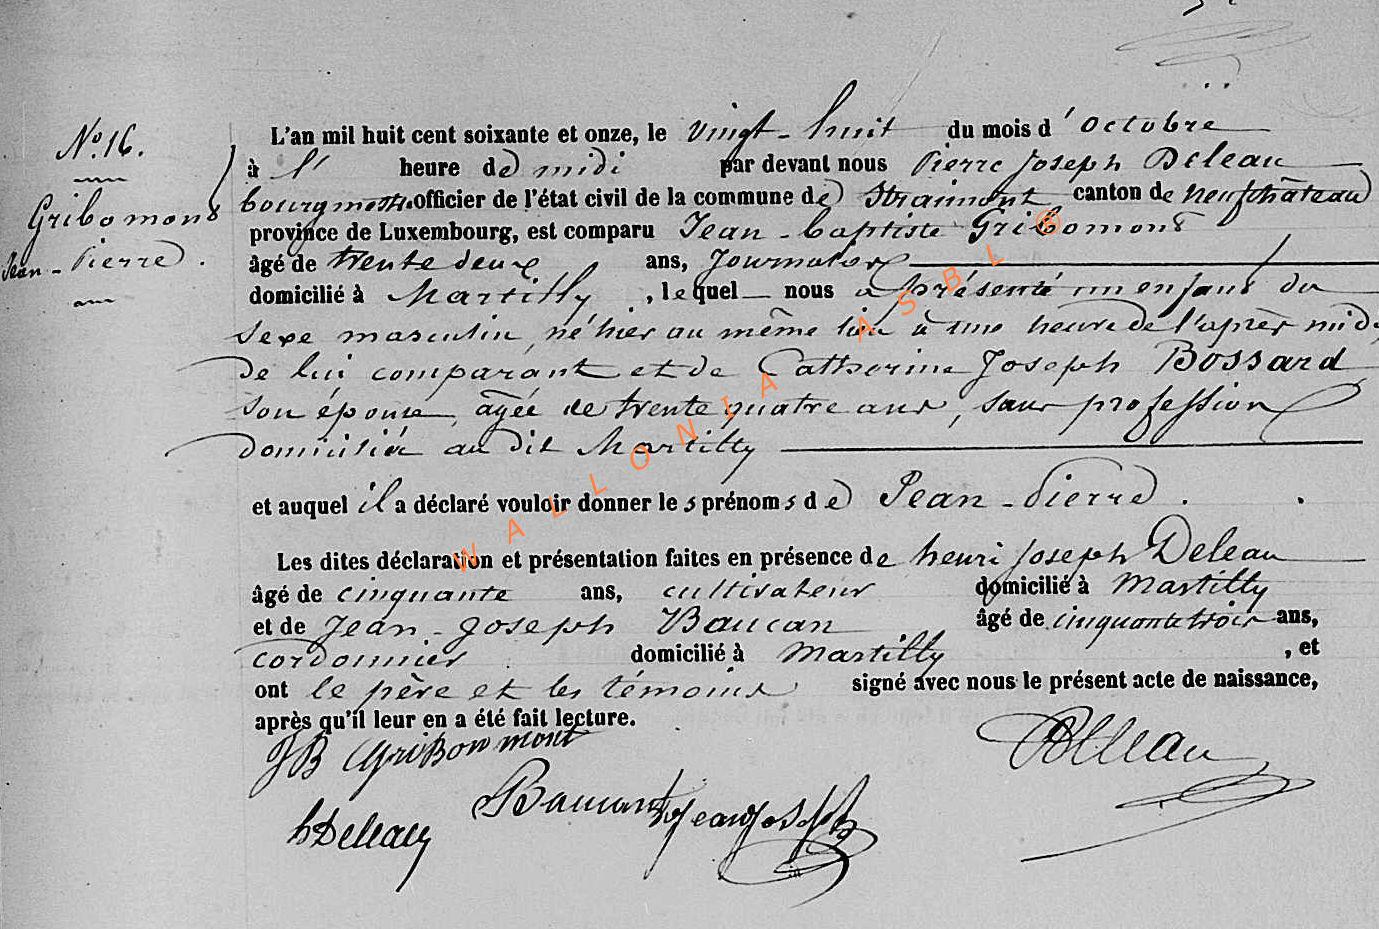 N.o 16.
Gribomont
Jean-Pierre.
L'an mil huit cent soixante et onze, le vingt-huit du mois d'octobre
à l' heure de midi par devant nous Pierre Joseph Deleau
bourgmestre officier de l'état civil de la commune de Straimont canton de neufchâteau
province de Luxembourg, est comparu Jean-baptiste Gribomont
âgé de trente deux ans, Journalier
domicilié à Martilly, lequel nous a présenté un enfant du
sexe masculin, né hier au même lieu à une heure de l'après midi,
de lui comparant et de Catherine Joseph Bossard
son épouse, âgée de trente quatre ans, sans profession
domiciliée au dit Martilly
et auquel il a déclaré vouloir donner les prénoms de Jean-Pierre.
Les dites déclaration et présentation faites en présence de henri Joseph Deleau
âgé de cinquante ans, cultivateur domicilié à Martilly
et de Jean-Joseph Baucan âgé de cinquante trois ans,
cordonnier domicilié à Martilly, et
ont le père et les témoins signé avec nous le présent acte de naissance,
après qu'il leur en a été fait lecture.
JB Gribommont
Deleau
hDeleau
Jean Joseph
WALLONIA ASBL ©